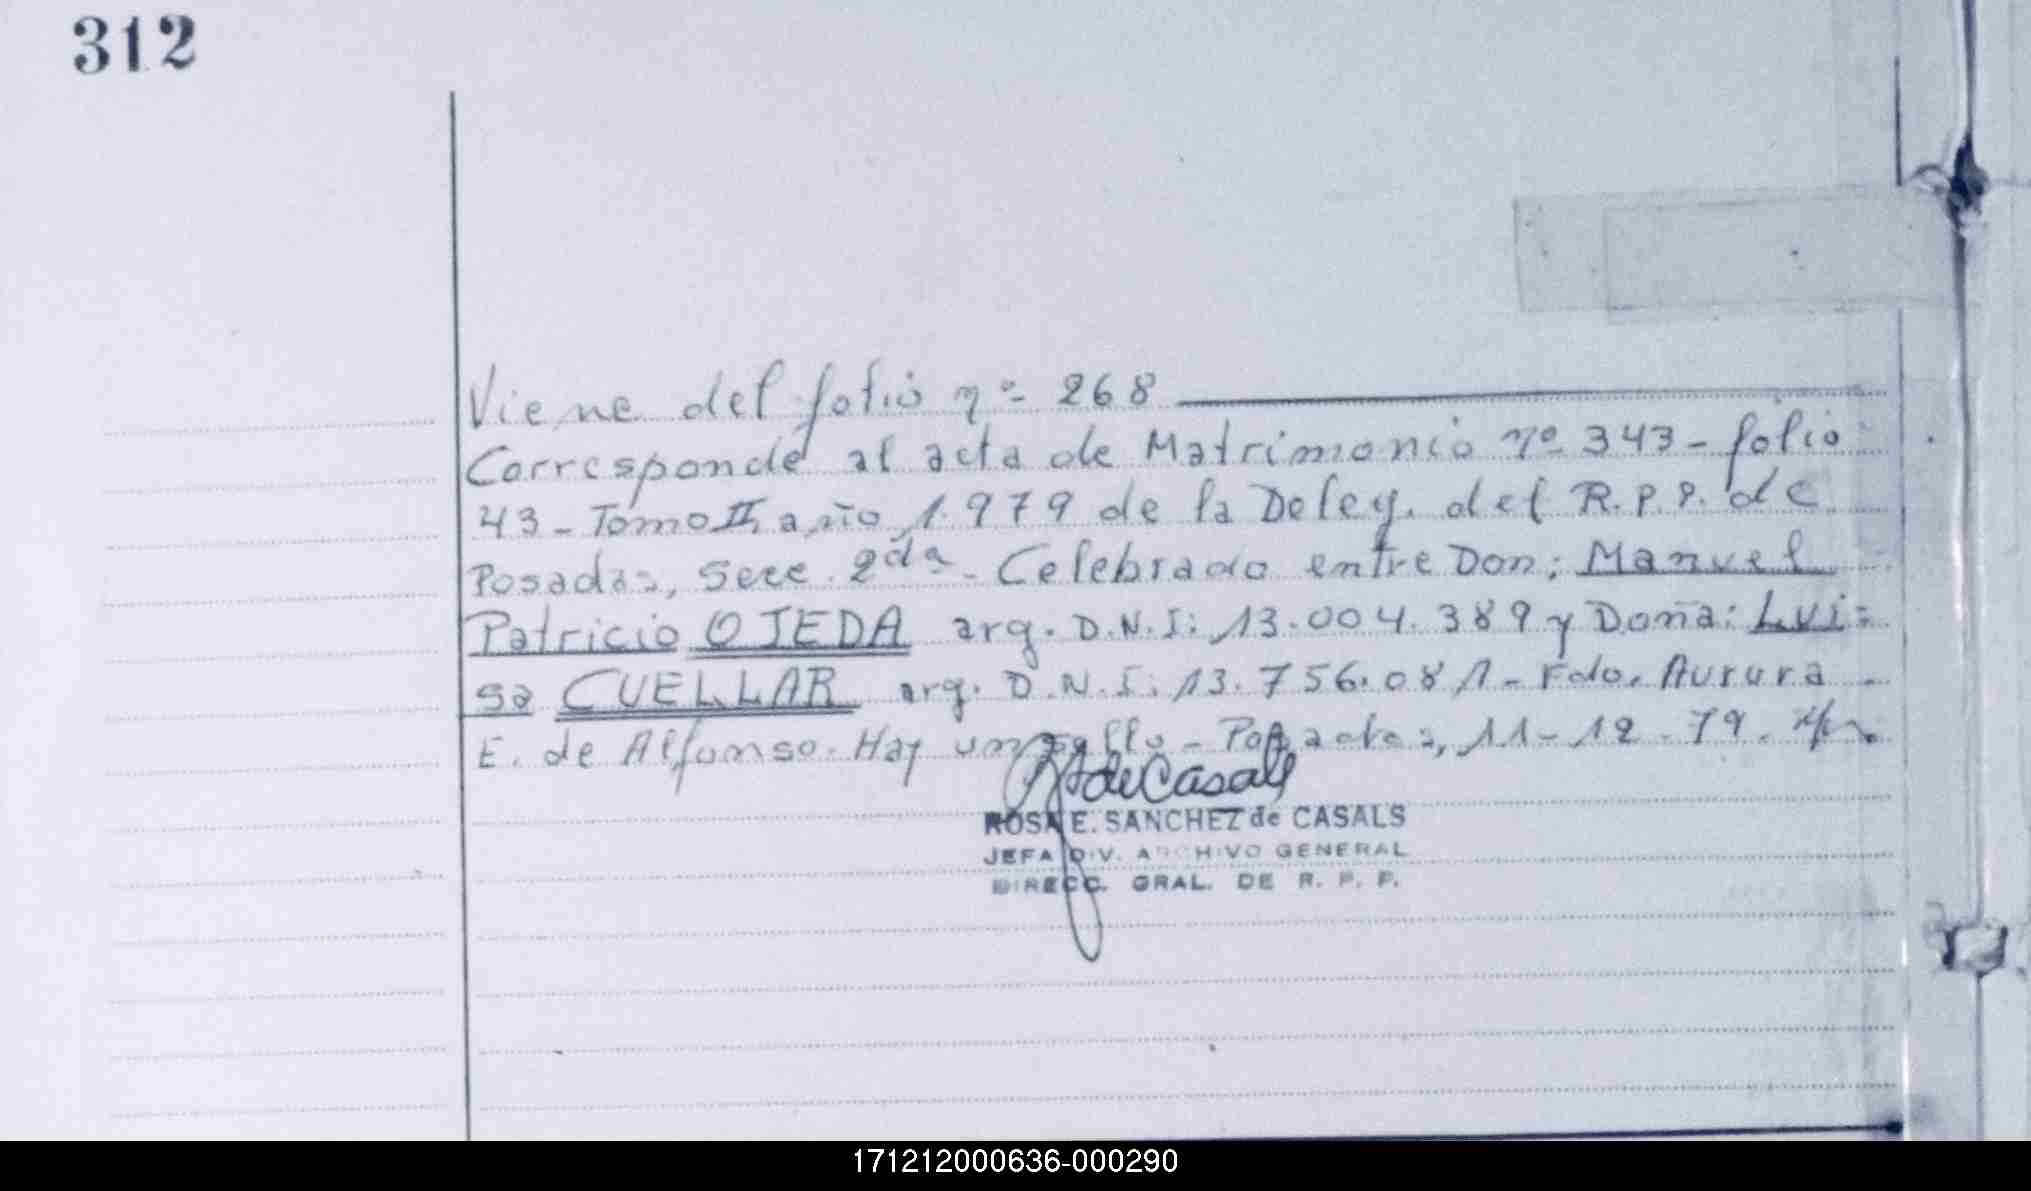 312
Viene del folio nº 268
Corresponde al acta de Matrimonio nº 343 - folio
43 - Tomo II año 1.979 de la Deleg. del R.P.P. de
Posadas, Secc. 2da - Celebrado entre Don: Manuel
Patricio OJEDA arg. D.N.I: 13.004.389 y Doña: Lui=
sa CUELLAR arg. D.N.I: 13.756.081 - Fdo. Aurura
E. de Alfonso. Hay un sello - Posadas, 11 - 12 - 79.
de Casals
ROSA E. SANCHEZ de CASALS
JEFA DIV. ARCHIVO GENERAL
DIRECC. GRAL. DE R. P. P.
171212000636-000290